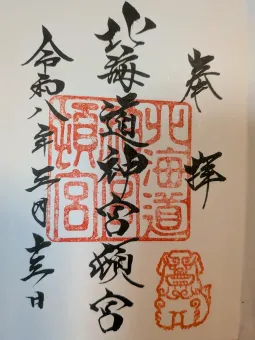 奉拝
北海道神宮頓宮
令和八年三月日
北海道
神宮
頓宮